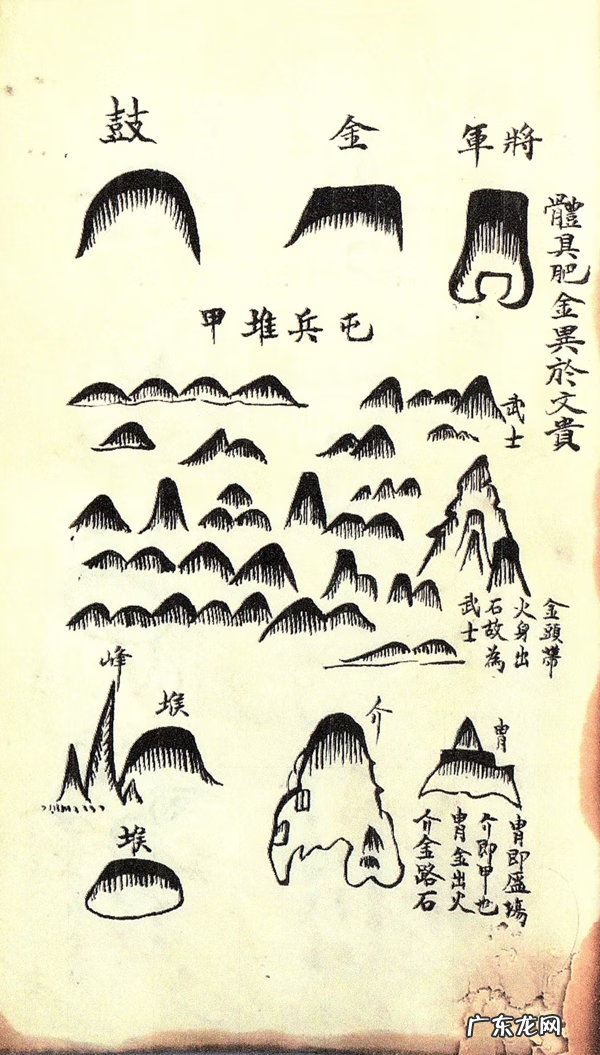 將軍
體具肥金異於文貴
金
鼓
屯兵堆甲
武士
金頭帶
火身出
石故為
武士
冑
冑即
介即甲也
冑金出火
介金路石
介
堠
峰
堠
广东龙网